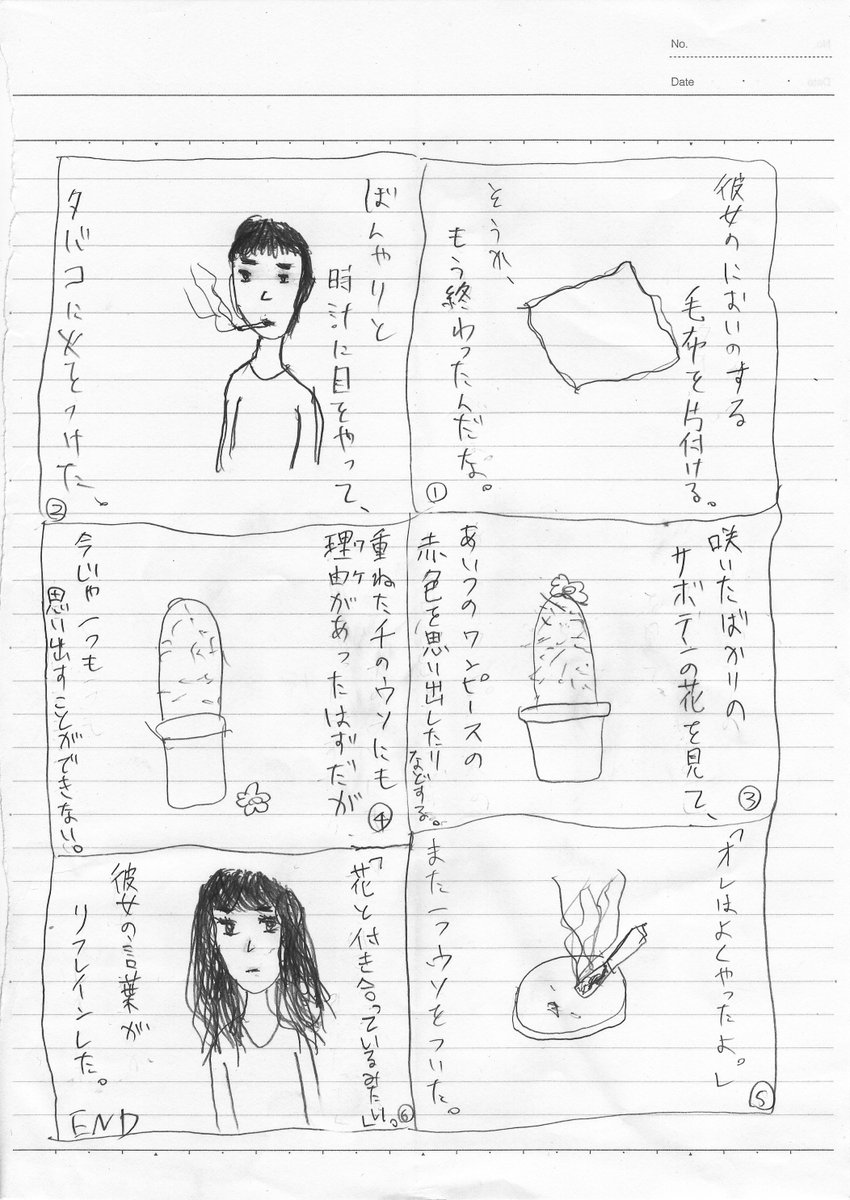 No.
Date
彼女のにおいのする
毛布を片付ける。
そうか、
もう終わったんだな。
①
ぼんやりと
時計に目をやって、
タバコに火をつけた。
②
咲いたばかりの
サボテンの花を見て、
あいつのワンピースの
赤色を思い出したり
などする。
③
重ねた千のウソにも
理由があったはずだが
ワケ
今じゃ一つも
思い出すことができない。
④
「オレはよくやったよ。」
また一つウソをついた。
⑤
「花と付き合っているみたい。」
彼女の言葉が
リフレインした。
⑥
END